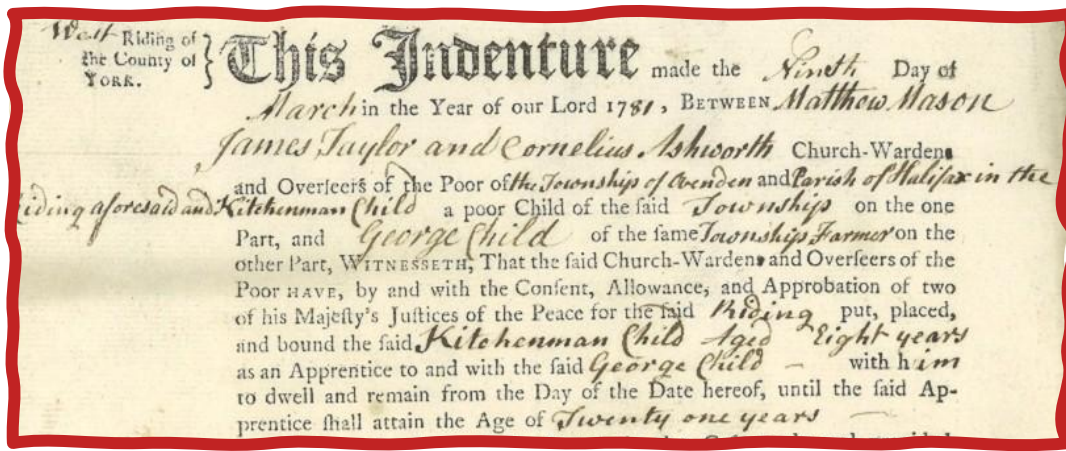 West Riding of
the County of
YORK.
This Indenture made the Ninth Day of
March in the Year of our Lord 1781, BETWEEN Matthew Mason
James Taylor and Cornelius Ashworth Church-Wardens
and Overſeers of the Poor of the Township of Ovenden and Parish of Halifax in the
Riding aforesaid and Kitchenman Child a poor Child of the ſaid Township on the one
Part, and George Child of the ſame Township Farmer on the
other Part, WITNESSETH, That the ſaid Church-Wardens and Overſeers of the
Poor HAVE, by and with the Conſent, Allowance, and Approbation of two
of his Majeſty's Juſtices of the Peace for the ſaid Riding put, placed,
and bound the ſaid Kitchenman Child Aged Eight years
as an Apprentice to and with the ſaid George Child – with him
to dwell and remain from the Day of the Date hereof, until the ſaid Ap-
prentice ſhall attain the Age of Twenty one years —